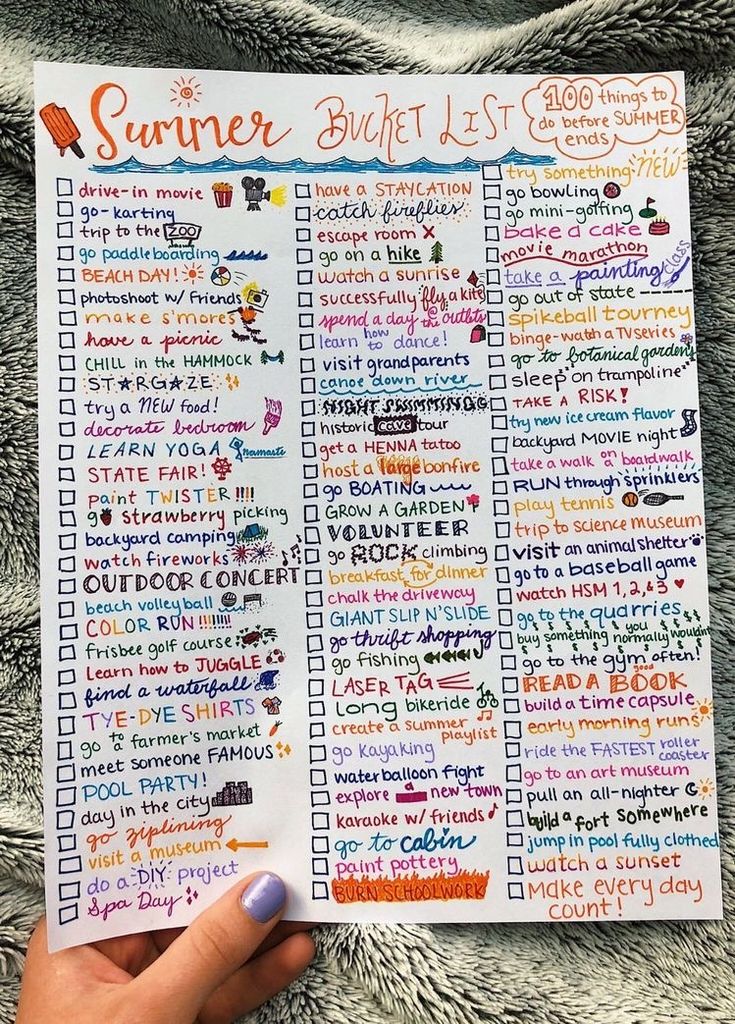 Summer BUCKET LIST
100 things to
do before SUMMER
ends
drive-in movie
go-karting
trip to the ZOO
go paddleboarding
BEACH DAY!
photoshoot w/ friends
make s'mores
have a picnic
CHILL in the HAMMOCK
STARGAZE
try a NEW food!
decorate bedroom
LEARN YOGA namaste
STATE FAIR!
paint TWISTER !!!!
go strawberry picking
backyard camping
watch fireworks
OUTDOOR CONCERT
beach volleyball
COLOR RUN!!!!!!!
frisbee golf course
Learn how to JUGGLE
find a waterfall
TYE-DYE SHIRTS
go to a farmer's market
meet someone FAMOUS
POOL PARTY!
day in the city
go ziplining
visit a museum
do a DIY project
Spa Day
have a STAYCATION
catch fireflies
escape room
go on a hike
watch a sunrise
successfully fly a kite
spend a day @ the outlets
learn how to dance!
visit grandparents
canoe down river
NIGHT SWIMMING
historic cave tour
get a HENNA tatoo
host a large bonfire
go BOATING
GROW A GARDEN
VOLUNTEER
go ROCK climbing
breakfast for dinner
chalk the driveway
GIANT SLIP N'SLIDE
go thrift shopping
go fishing
LASER TAG
long bikeride
create a summer
playlist
go kayaking
water balloon fight
explore new town
karaoke w/ friends
go to cabin
paint pottery
BURN SCHOOLWORK
try something NEW
go bowling
go mini-golfing
bake a cake
movie marathon
take a painting class
go out of state
spikeball tourney
binge-watch a TV series
go to botanical gardens
sleep on trampoline zzz
TAKE A RISK!
try new ice cream flavor
backyard MOVIE night
take a walk on a boardwalk
RUN through sprinklers
play tennis
trip to science museum
visit an animal shelter
go to a baseball game
watch HSM 1, 2, & 3
go to the quarries
$ $ $ $ $ $ $
buy something you normally wouldn't
$ $ $ $ $ $ $
go to the gym often!
READ A good BOOK
build a time capsule
early morning runs
ride the FASTEST roller
coaster
go to an art museum
pull an all-nighter
build a fort somewhere
jump in pool fully clothed
watch a sunset
Make every day
count!